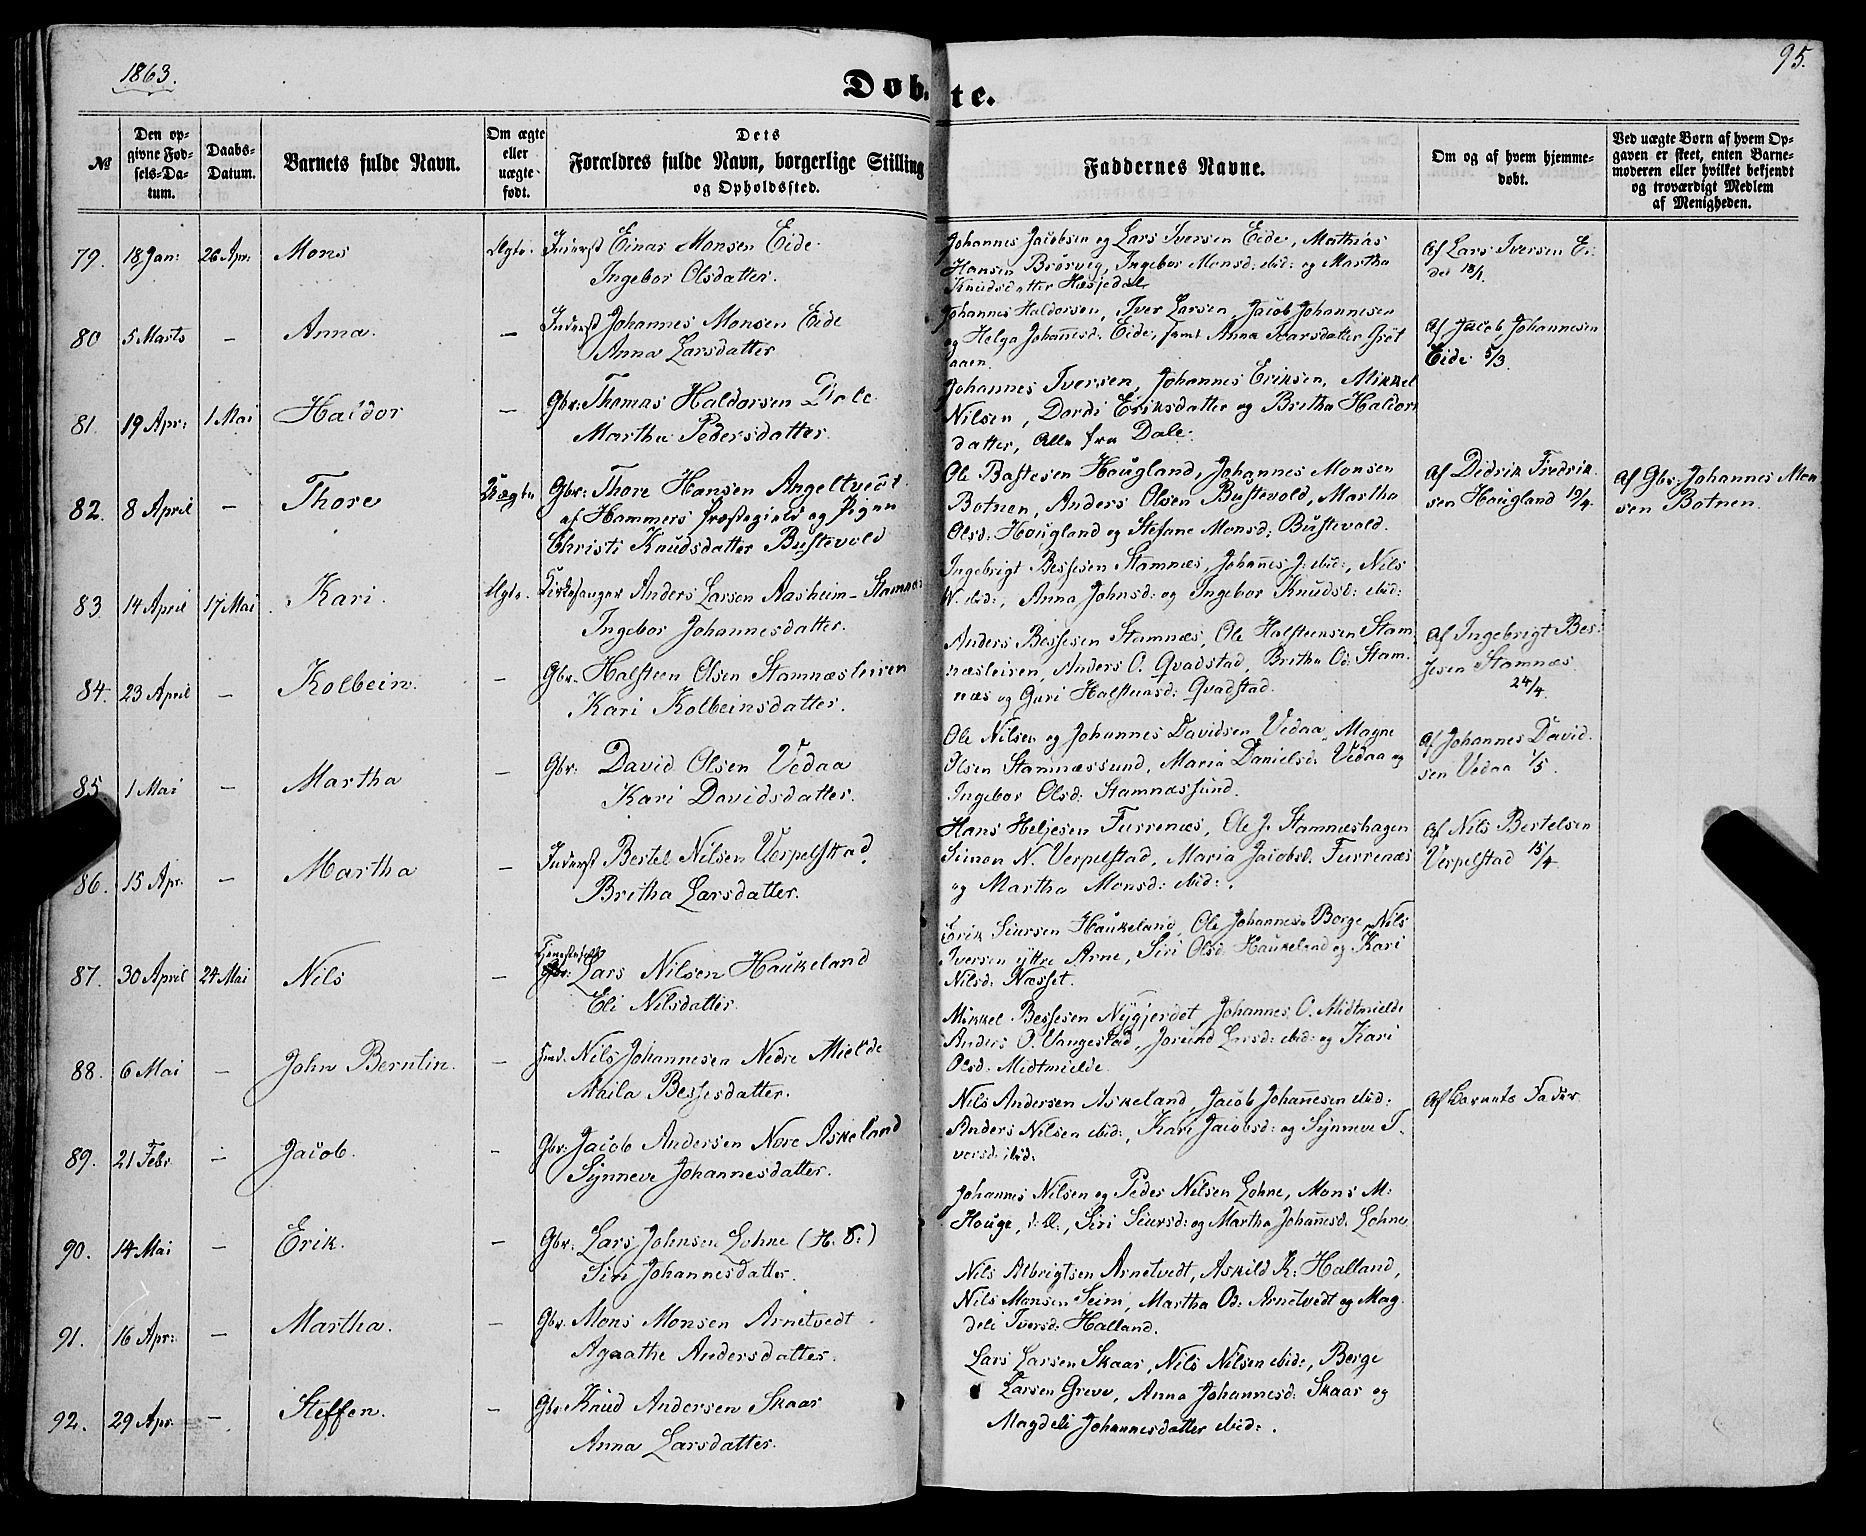 1863.
95.
Døbte.
No
Den opgivne Fødsels-Datum.
Daabs-Datum.
Barnets fulde Navn.
Om ægte eller uægte født.
Dets Forældres fulde Navn, borgerlige Stilling og Opholdssted.
Faddernes Navne.
Om og af hvem hjemmedøbt.
Ved uægte Børn af hvem Opgaven er skeet, enten Barnemoderen eller hvilket bekjendt og troværdigt Medlem af Menigheden.
79. 18 Jan: 26 Apr: Mons Ægte. Inderst Einar Monsen Eide
Ingebor Olsdatter.
Johannes Jacobsen og Lars Iversen Eide, Mathias
Hansen Brørvig, Ingebor Monsd: ibid: og Martha
Knudsdatter Hæsjedal
Af Lars Iversen Ei-
det 18/1.
80 5 Marts – Anna. – Inderst Johannes Monsen Eide
Anna Larsdatter
Johannes Haldorsen, Iver Larsen, Jacob Johannesen
og Helga Johannesd: Eide, samt Anna Ivarsdatter
aaen.
Af Jacob Johannesen
Eide 5/3.
81. 19 Apr: 1 Mai Haldor – Gbr: Thomas Haldorsen Dale
Martha Pedersdatter.
Johannes Iversen, Johannes Eriksen, Mikkel
Nilsen, Dordi Eriksdatter og Britha Haldors
datter, Alle fra Dale.
82. 8 April – Thore Uægte Gbr: Thore Hansen Angeltvedt
af Hammers Præstegjeld og Pigen
Christi Knudsdatter Bustevold
Ole Bastesen Hougland, Johannes Monsen
Botnen, Anders Olsen Bustevold, Martha
Olsd: Hougland og Stefane Monsd: Bustevold.
Af Didrik Fredrik
sen Hougland 19/4.
Af Gbr: Johannes Mon
sen Botnen.
83 14 April 17 Mai Kari. Ægte. Kirkesanger Anders Larsen Aasheim – Stamnæs
Ingebor Johannesdatter.
Ingebrigt Bessesen Stamnæs, Johannes J: ibid:, Nils
N. ibid:, Anna Johnsd: og Ingebor Knudsd: ibid:
84. 23 April – Kolbein. – Gbr. Halsteen Olsen Stamnæsleiren
Kari Kolbeinsdatter.
Anders Bessesen Stamnæs, Ole Halsteensen Stam
næsleiren, Anders O. Qvadstad, Britha Od: Stam-
næs og Guri Halsteensd: Qvadstad.
Af Ingebrigt Bes-
sesen Stamnæs
24/4.
85 1 Mai – Martha – Gbr: David Olsen Vedaa
Kari Davidsdatter.
Ole Nilsen og Johannes Davidsen Vedaa, Magne
Olsen Stamnæssund, Maria Danielsd: Vedaa og
Ingebor Olsd: Stamnæssund.
Af Johannes David.
sen Vedaa 1/5.
86. 15 Apr. – Martha – Inderst Bertel Nilsen Verpelstad,
Britha Larsdatter.
Hans Heljesen Furrenæs, Ole J. Stamnæshagen
Simon N. Verpelstad, Maria Jacobsd. Furrenæs
og Martha Monsd: ibid:.
Af Nils Bertelsen
Verpelstad 15/4.
87. 30 April 24 Mai Nils – Tjenestefolk
Lars Nilsen Haukeland
Eli Nilsdatter.
Erik Siursen Haukeland, Ole Johannes. Borge, Nils
Iversen Ytre Arne, Siri Olsd. Haukeland og Kari
Nilsd: Næsset.
88. 6 Mai – John Berntin. – Ind. Nils Johannesen Nedre Mielde
Maila Bessesdatter.
Mikkel Bessesen Nygjerdet Johannes O. Midtmielde
Anders O. Vangestad, Jorund Larsd: ibid: og Kari
Olsd: Midtmielde.
89. 21 Febr – Jacob. – Gbr. Jacob Andersen Nore Askeland
Synneve Johannesdatter.
Nils Andersen Askeland, Jacob Johannesen ibid:
Anders Nilsen ibid:, Kari Jacobsd: og Synneve I-
versd: ibid:
Af Barnets Fader.
90. 14 Mai – Erik. – Gbr: Lars Johnsen Lohne (H. S.)
Siri Johannesdatter.
Johannes Nilsen og Peder Nilsen Lohne, Mons M:
Houge, Siri Siursd: og Martha Johannesd: Lohne
91. 16 Apr: – Martha. – Gbr. Mons Monsen Arnetvedt.
Agaathe Andersdatter.
Nils Albrigtsen Arnetvedt, Askild K: Halland,
Nils Monsen Seim, Martha Od: Arnetvedt og Mag
deli Iversd: Halland.
92. 29 Apr. – Steffen. – Gbr Knud Andersen Skaar
Anna Larsdatter.
Lars Larsen Skaar, Nils Nilsen ibid:, Berge
Larsen Greve, Anna Johannesd: Skaar og
Magdeli Johannesdatter ibid:.